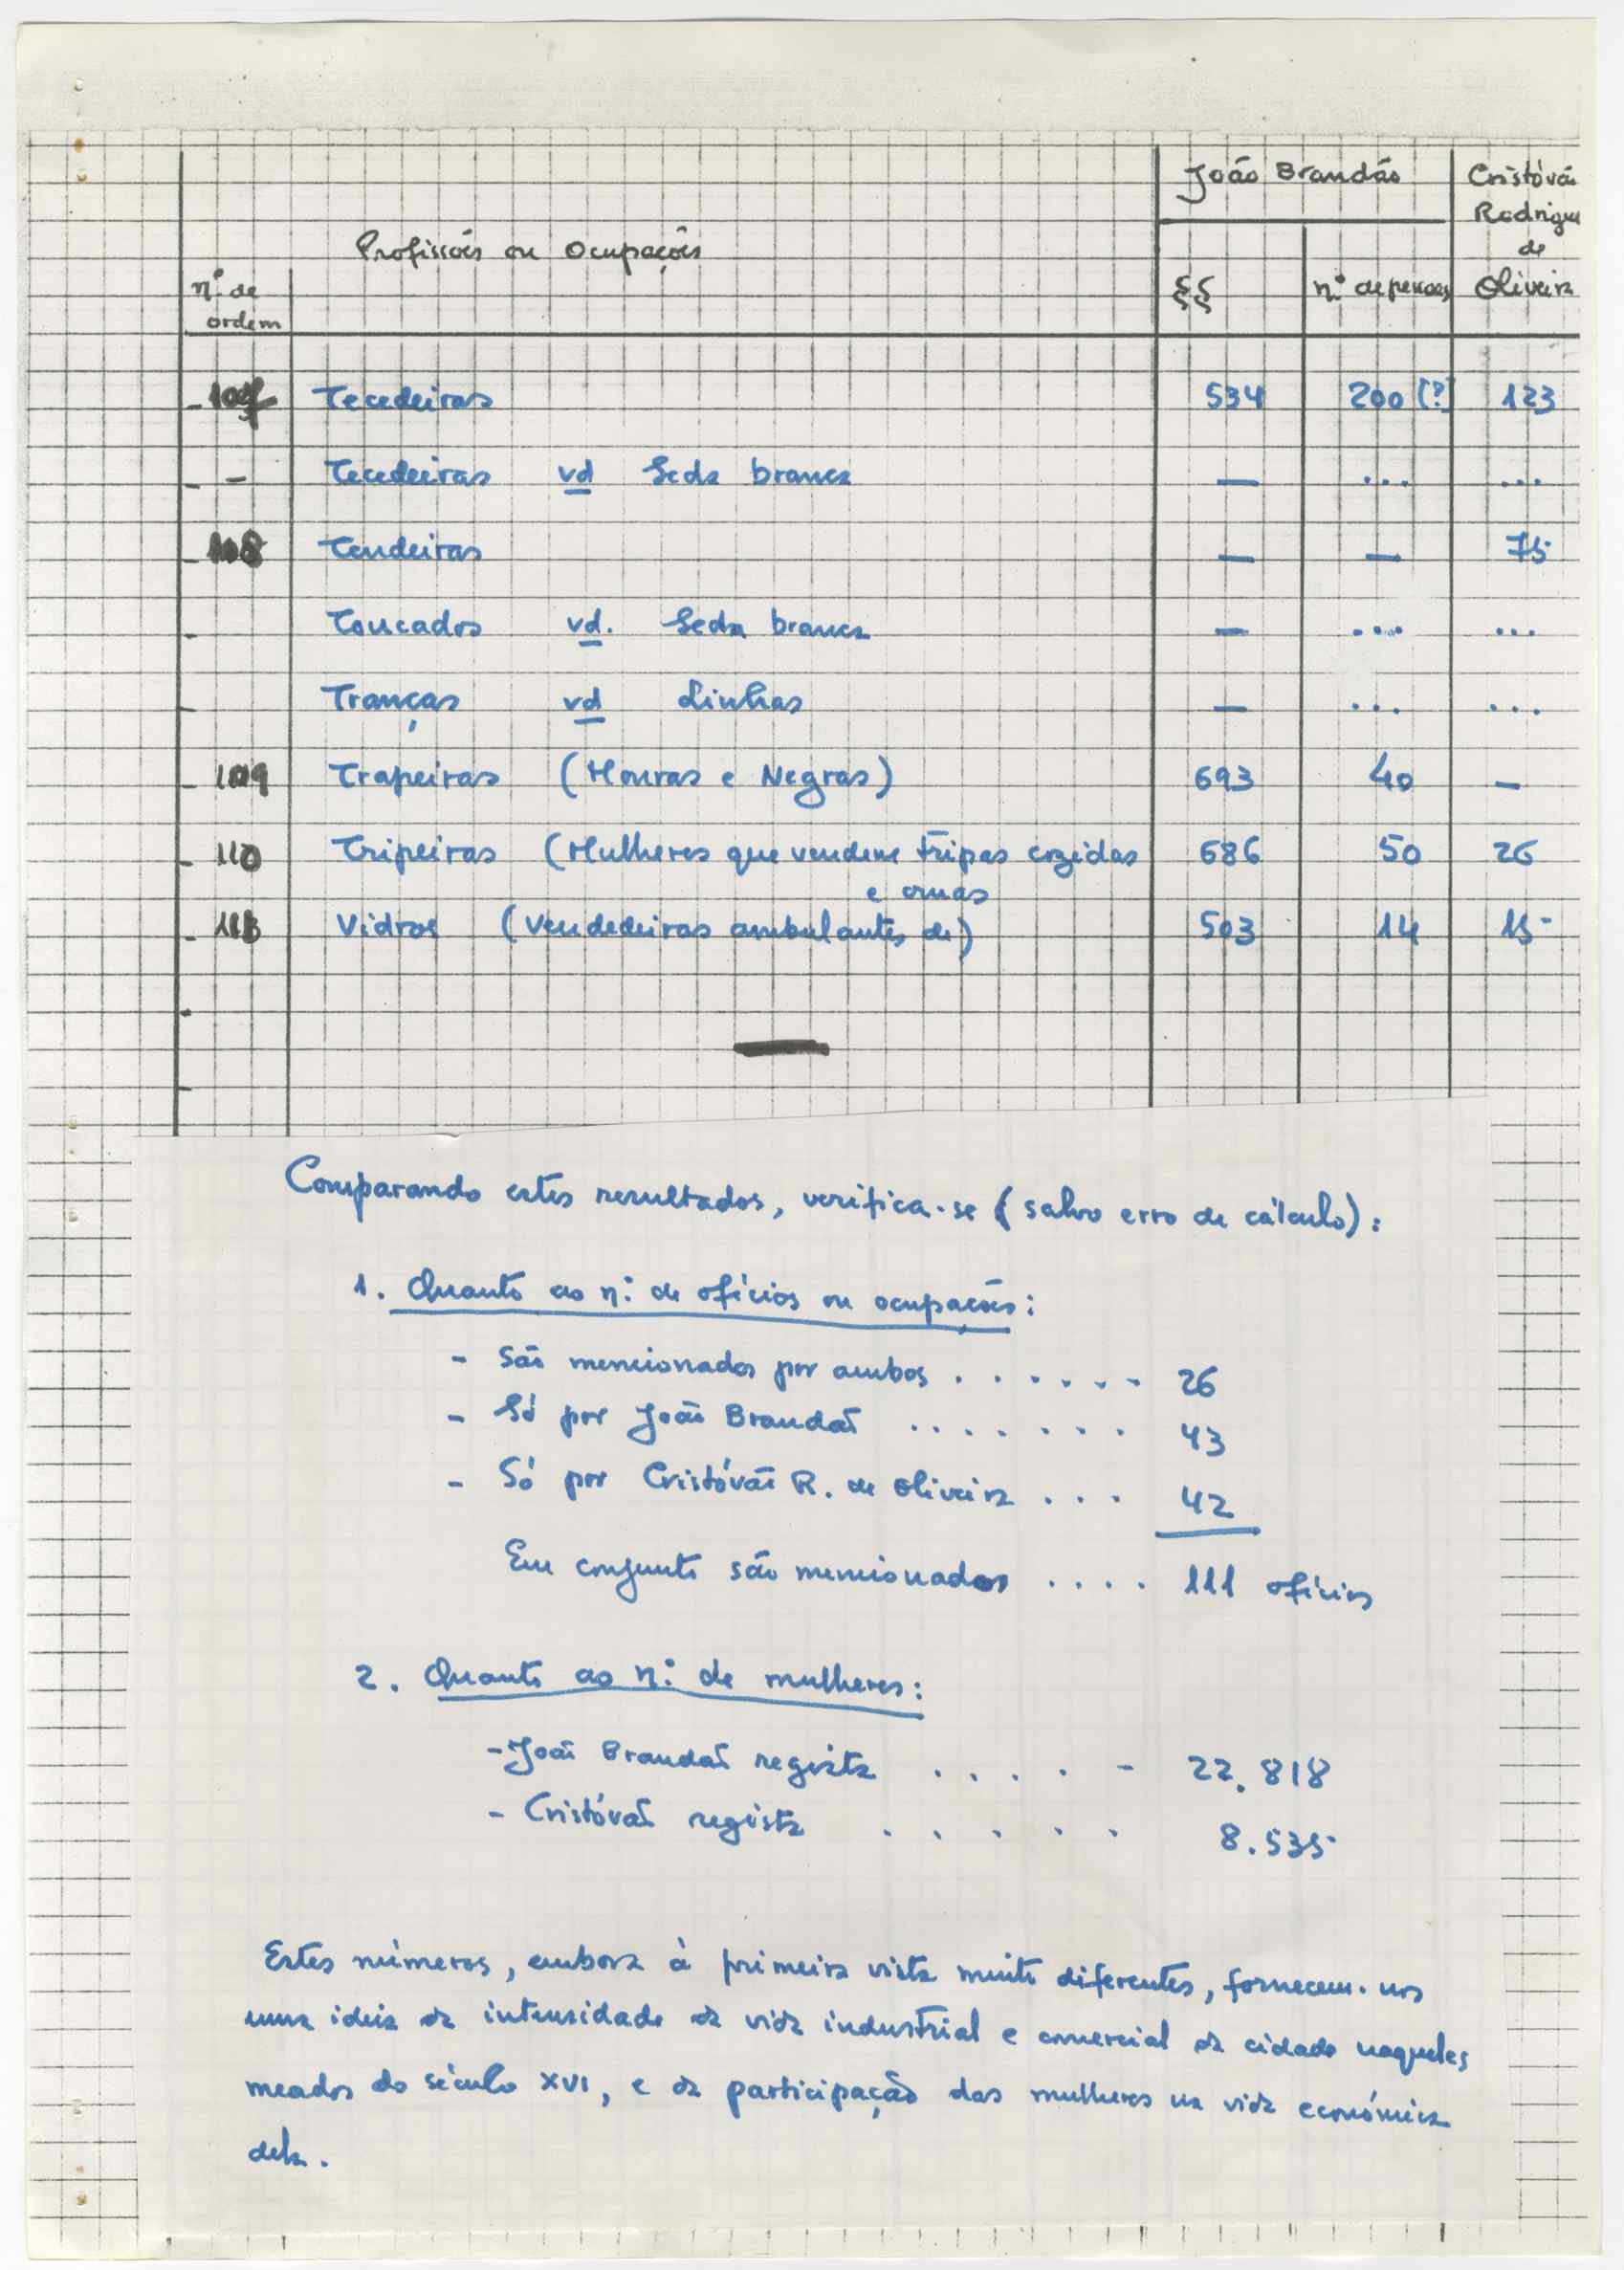 João Brandão Cristóvão
Rodrigues
Profissões ou Ocupações de
nº de §§ nº de pessoas Oliveira
ordem
Tecedeiras 534 200 (?) 123
- Tecedeiras vd Seda branca — ... ...
108 Tendeiras — — 75
Toucados vd. Seda branca — ... ...
Tranças vd Linhas — ... ...
109 Trapeiras (Mouras e Negras) 693 40 —
110 Tripeiras (Mulheres que vendem tripas cozidas 686 50 26
e cruas
Vidros (Vendedeiras ambulantes de) 503 14 15
Comparando estes resultados, verifica-se (salvo erro de cálculo):
1. Quanto ao nº de ofícios ou ocupações:
- São mencionados por ambos . . . . . . 26
- Só por João Brandão . . . . . . . 43
- Só por Cristóvão R. de Oliveira . . . 42
Em conjunto são mencionados . . . . 111 ofícios
2. Quanto ao nº de mulheres:
- João Brandão regista . . . . - 22.818
- Cristóvão regista . . . . . 8.535
Estes números, embora à primeira vista muito diferentes, fornecem-nos
uma ideia da intensidade da vida industrial e comercial da cidade naqueles
meados do século XVI, e da participação das mulheres na vida económica
dela.